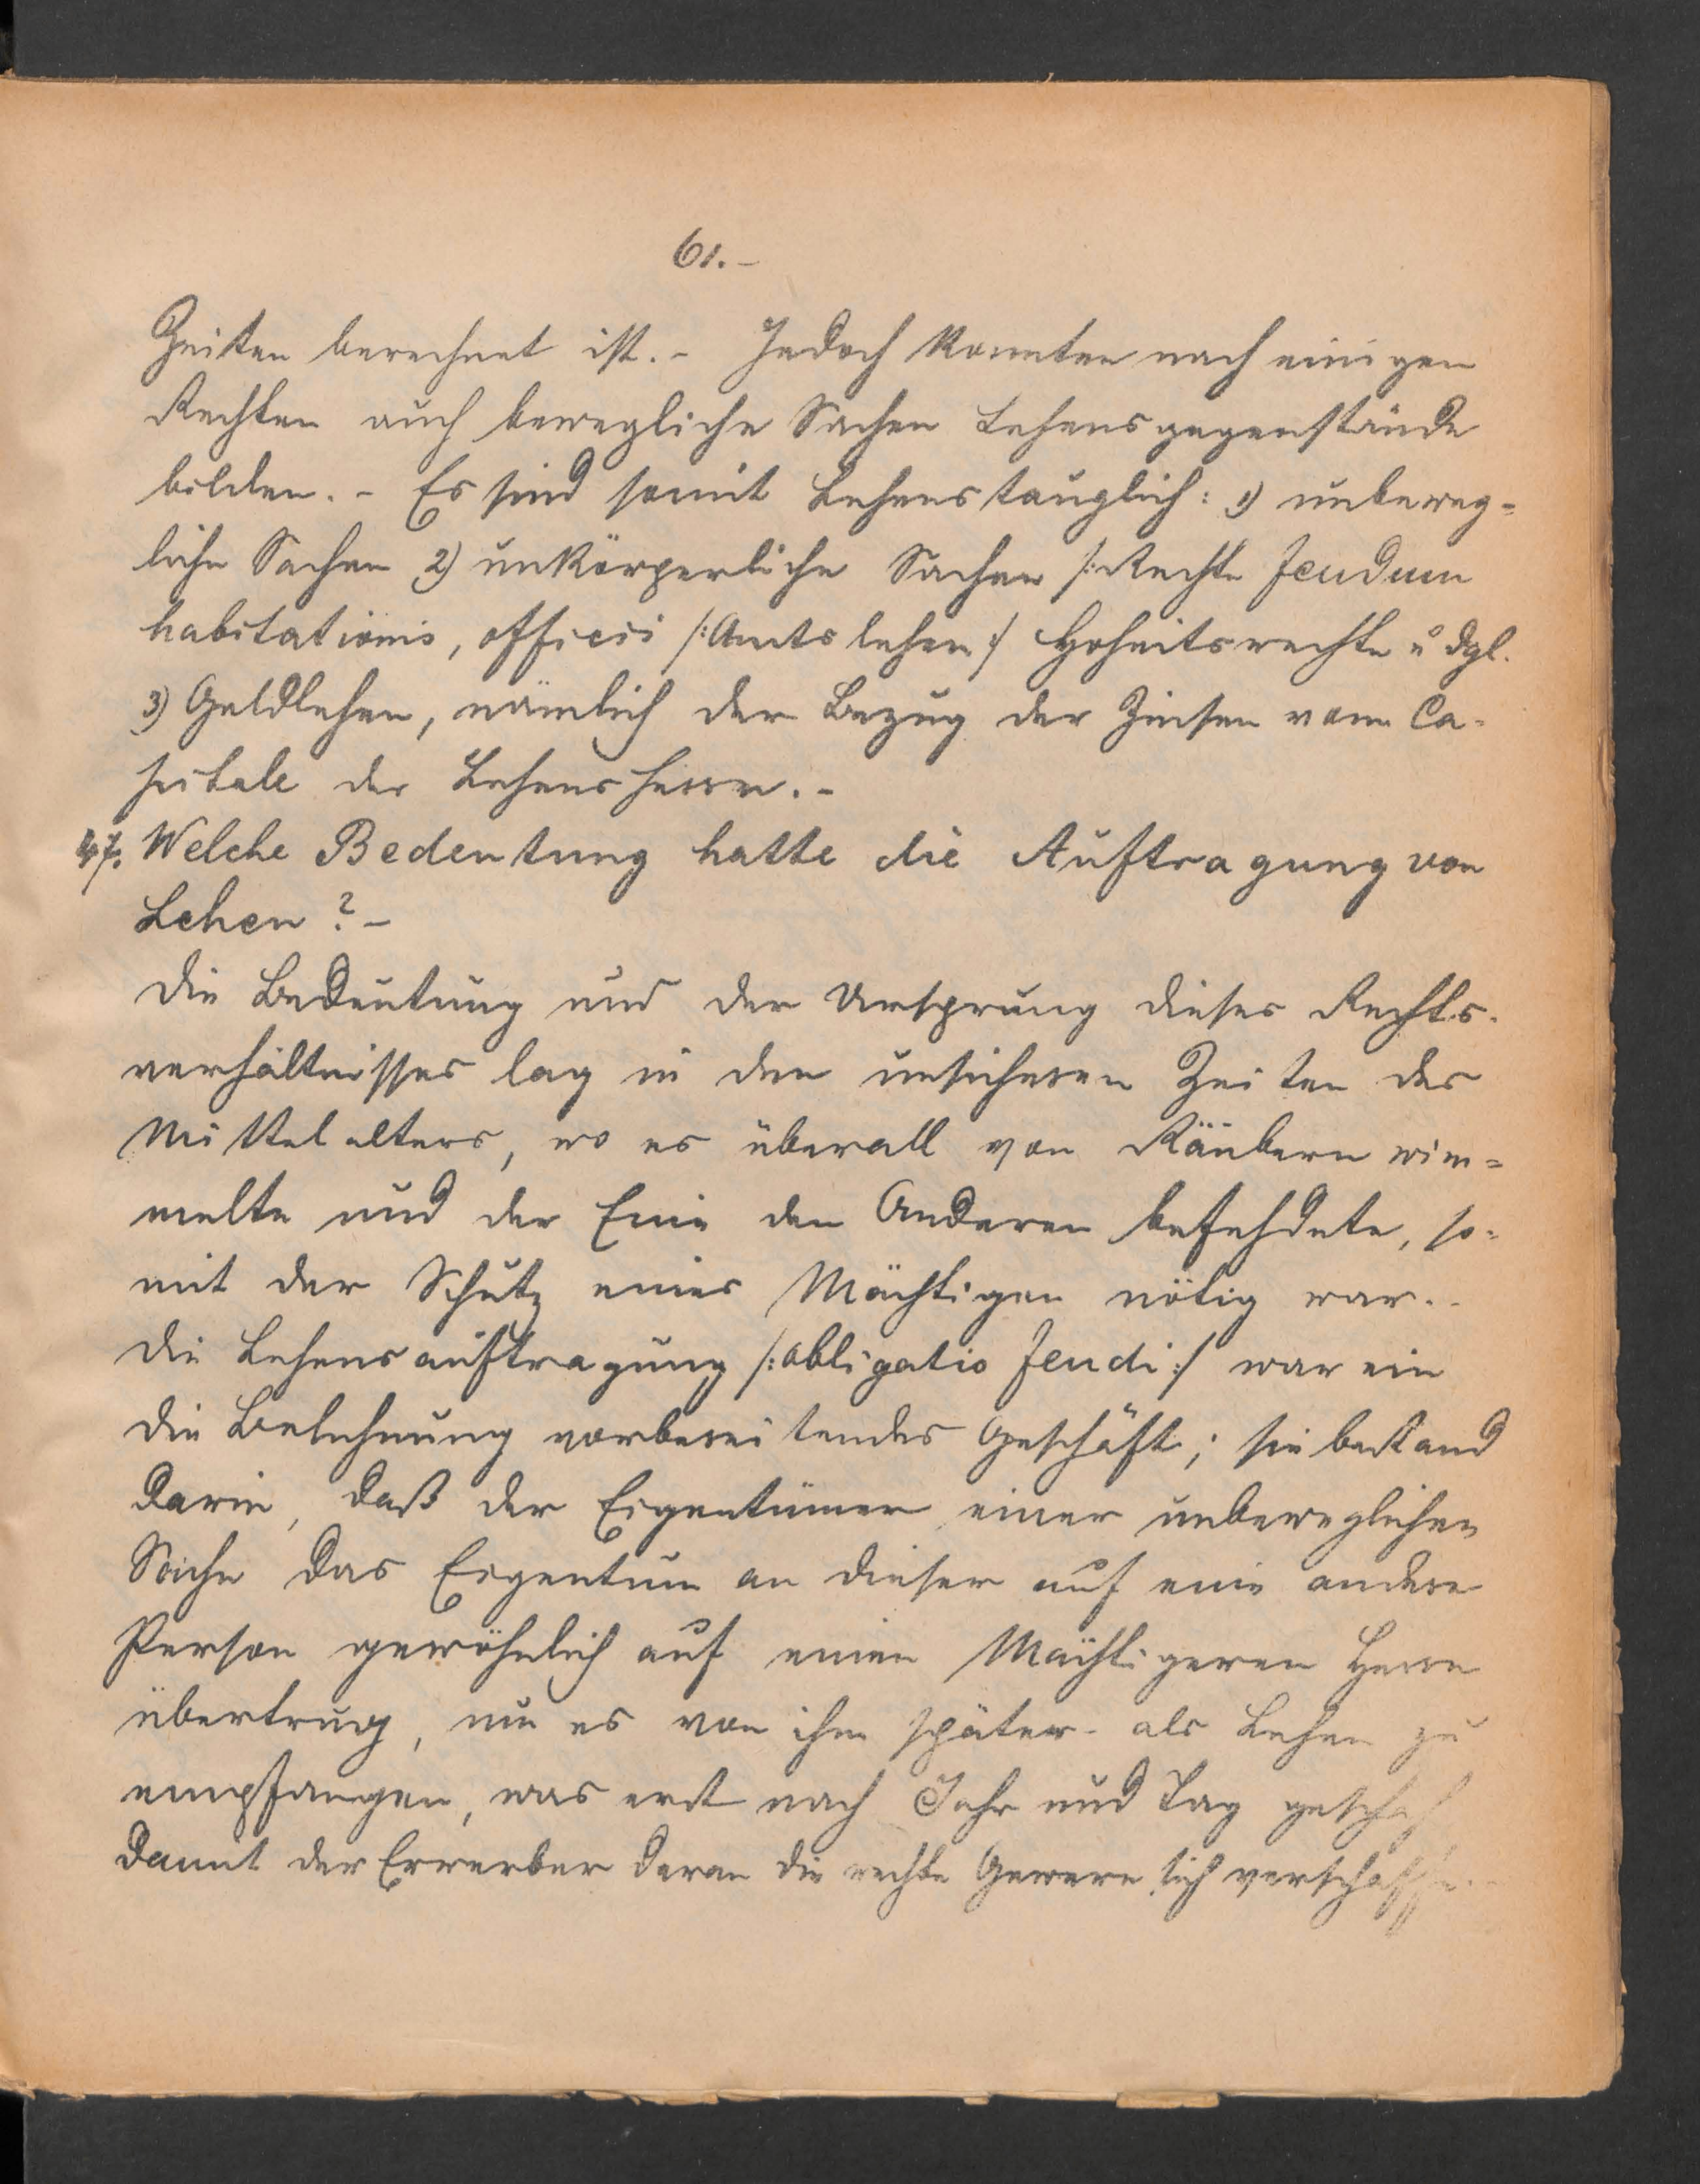 61.-
Zeiten berechnet ist.- Jedoch konnten nach einigen
Rechten auch bewegliche Sachen Lehensgegenstände
bilden.- Es sind somit Lehenstauglich: 1) unbeweg=
liche Sachen 2) unkörperliche Sachen /:Rechte feudum
habitationis, officii /:Amtslehen:/ Hoheitsrechte u dgl.
3) Geldlehen, nämlich der Bezug der Zinsen vom Ca-
pitale des Lehensherrn.-
47. Welche Bedeutung hatte die Auftragung von
Lehen?-
Die Bedeutung und der Ursprung dieses Rechts-
verhältnisses lag in den unsicheren Zeiten des
Mittelalters, wo es überall von Räubern wim=
melte und der Eine den Anderen befehdete, so=
mit der Schutz eines Mächtigen nötig war.-
Die Lehensauftragung /:obligatio feudi:/ war ein
die Belehnung vorbereitendes Geschäft; sie bestand
darin, daß der Eigentümer einer unbeweglichen
Sache das Eigentum an dieser auf eine andere
Person gewöhnlich auf einen Mächtigeren Herrn
übertrug, um es von ihm später- als Lehen zu
empfangen, was erst nach Jahr und Tag geschah
damit der Erwerber daran die rechte Gewere sich verschaffe.-